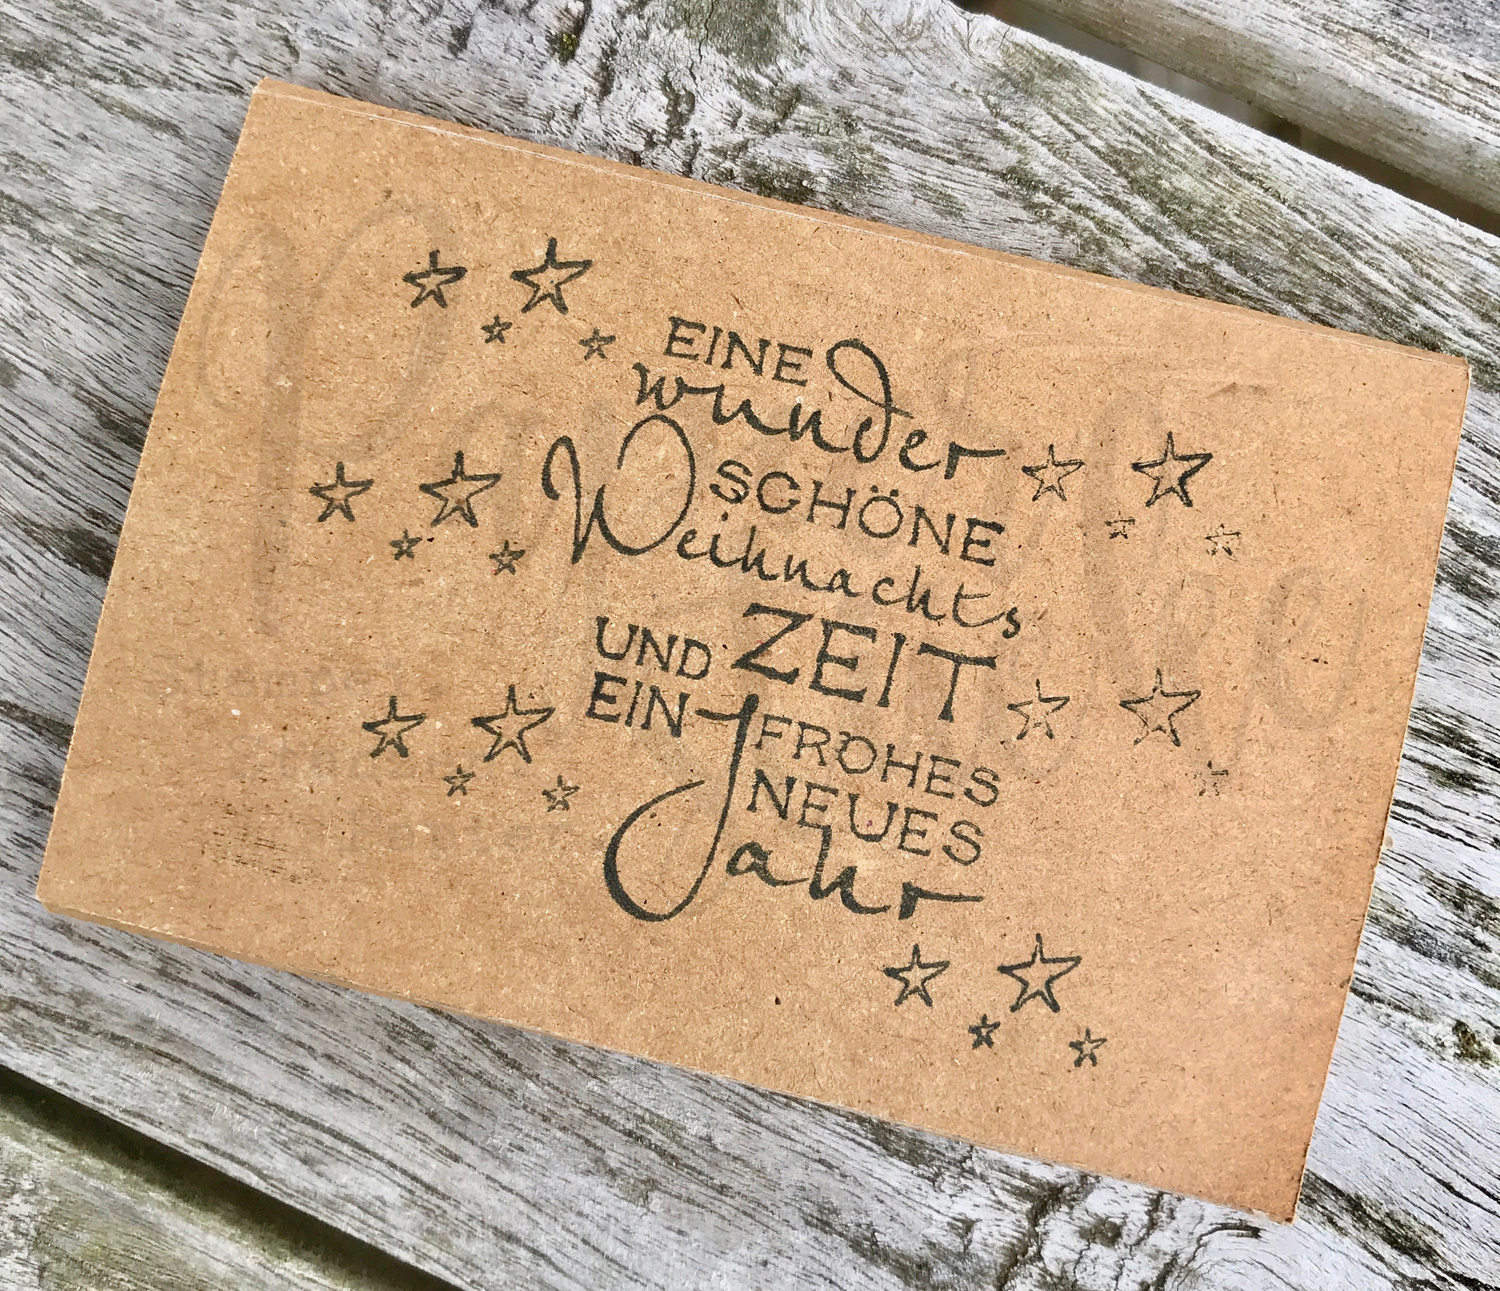 EINE
wunder
SCHÖNE
Weihnachts
UND ZEIT
EIN FROHES
NEUES
Jahr